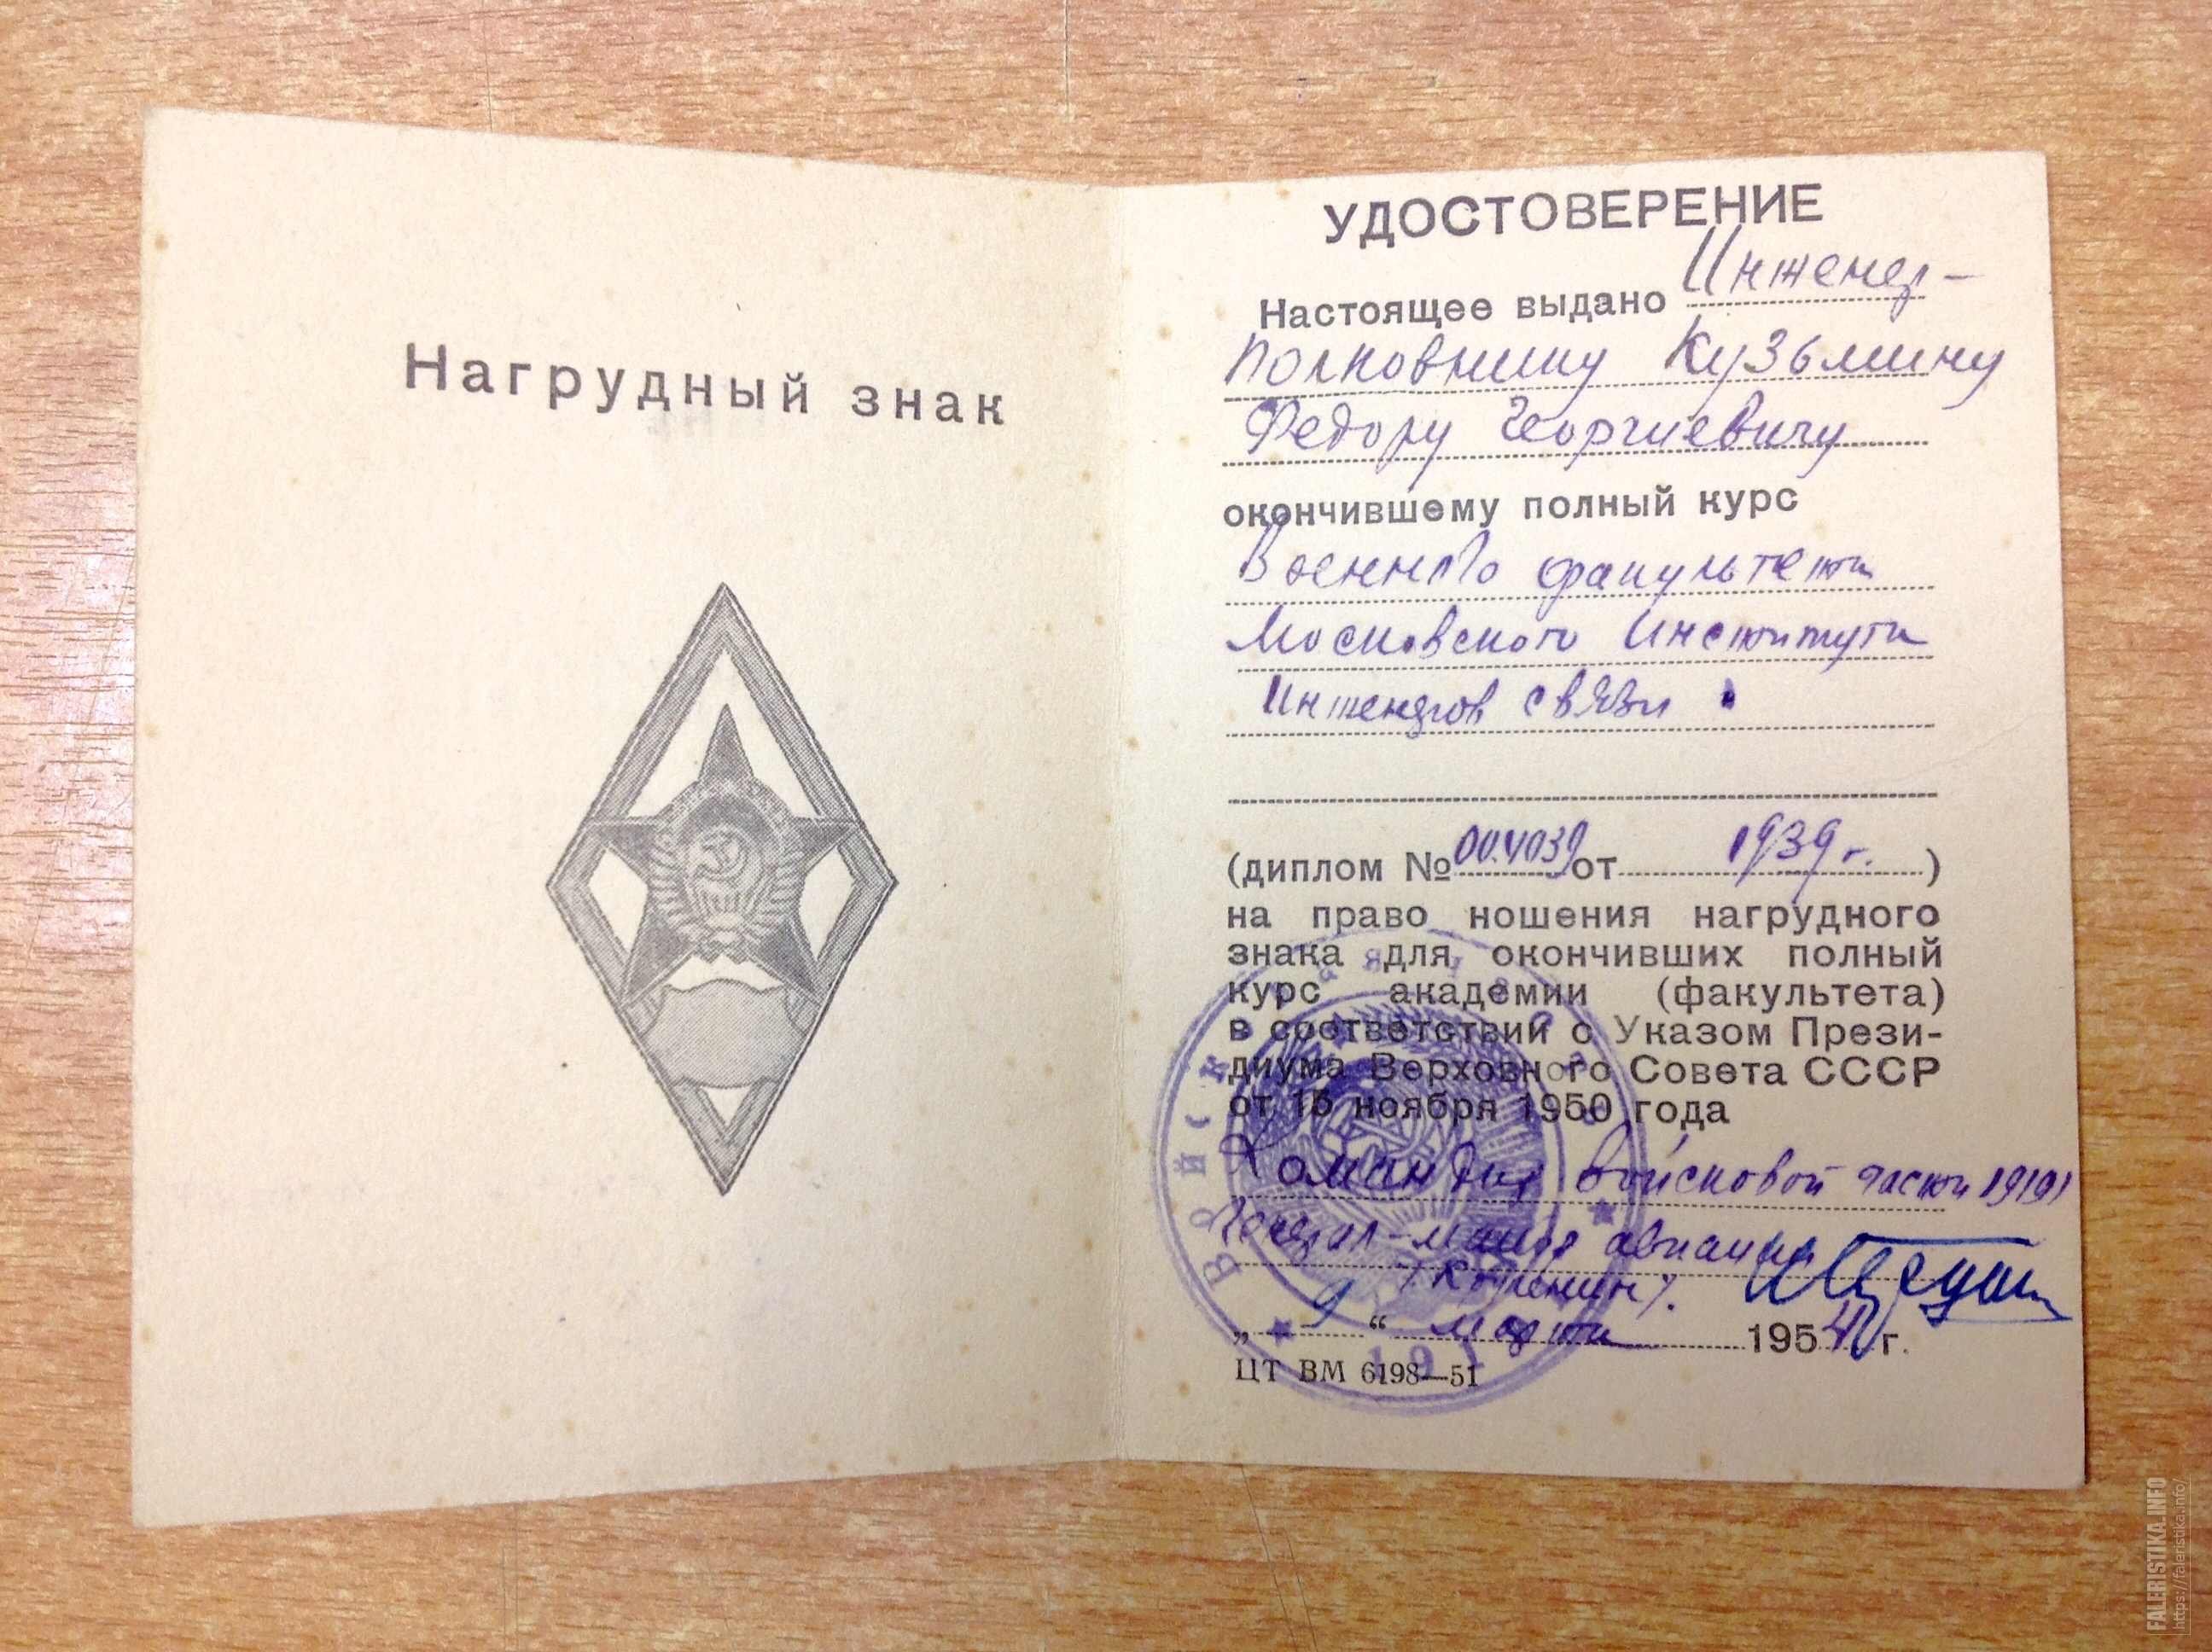 Нагрудный знак
УДОСТОВЕРЕНИЕ
Настоящее выдано Инженер-
полковнику Кузьмину
Федору Георгиевичу
окончившему полный курс
Военного факультета
Московского Института
Инженеров связи.
(диплом № 004039 от 1939 г.)
на право ношения нагрудного
знака для окончивших полный
курс академии (факультета)
в соответствии с Указом Прези-
диума Верховного Совета СССР
от 15 ноября 1950 года
Командир войсковой части
Генерал-майор авиации
„ 9 “ марта 1954 г.
ЦТ ВМ 6198—51
FALERISTIKA.INFO
https://faleristika.info/